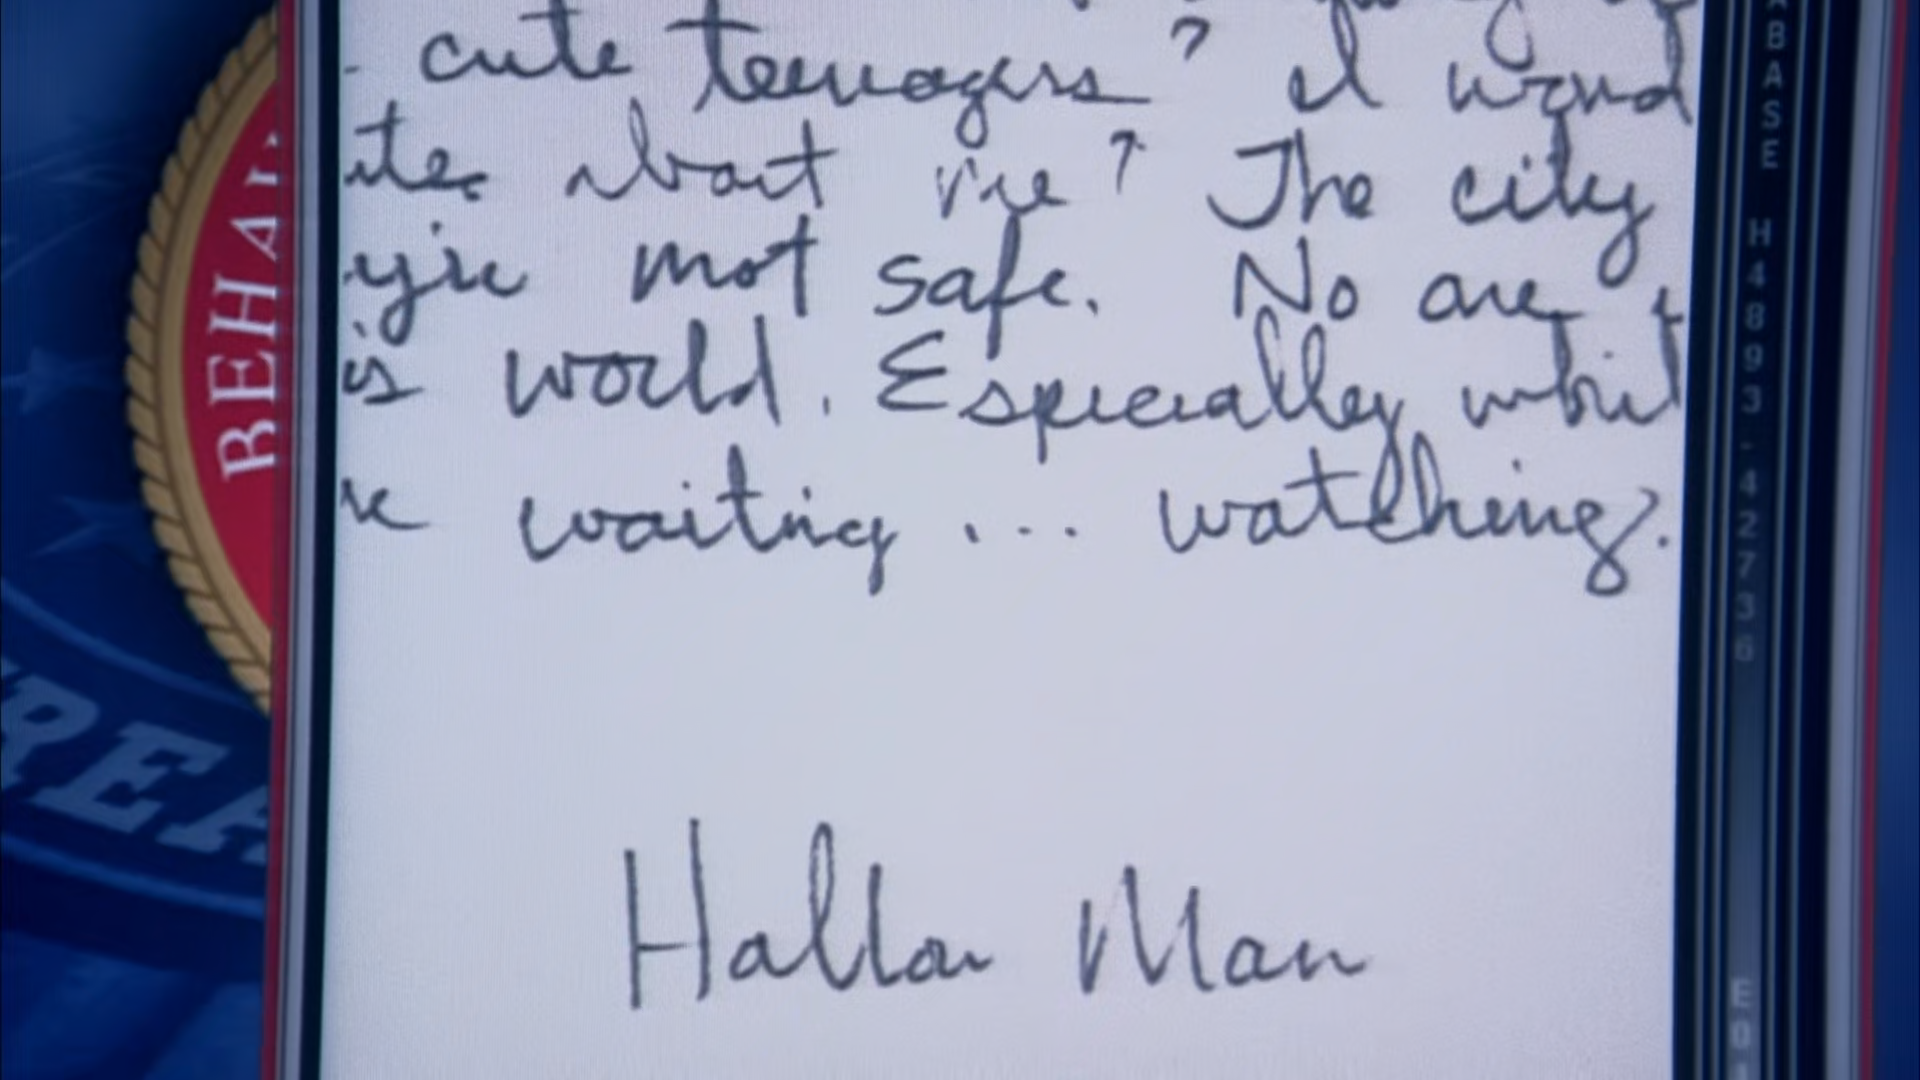 cute teenagers? I wond
ite about me? The city
mot safe. No one
is world. Especially whil
waiting... watching.
Hallow Man
BEHAV
REA
ABASE H4893-42736